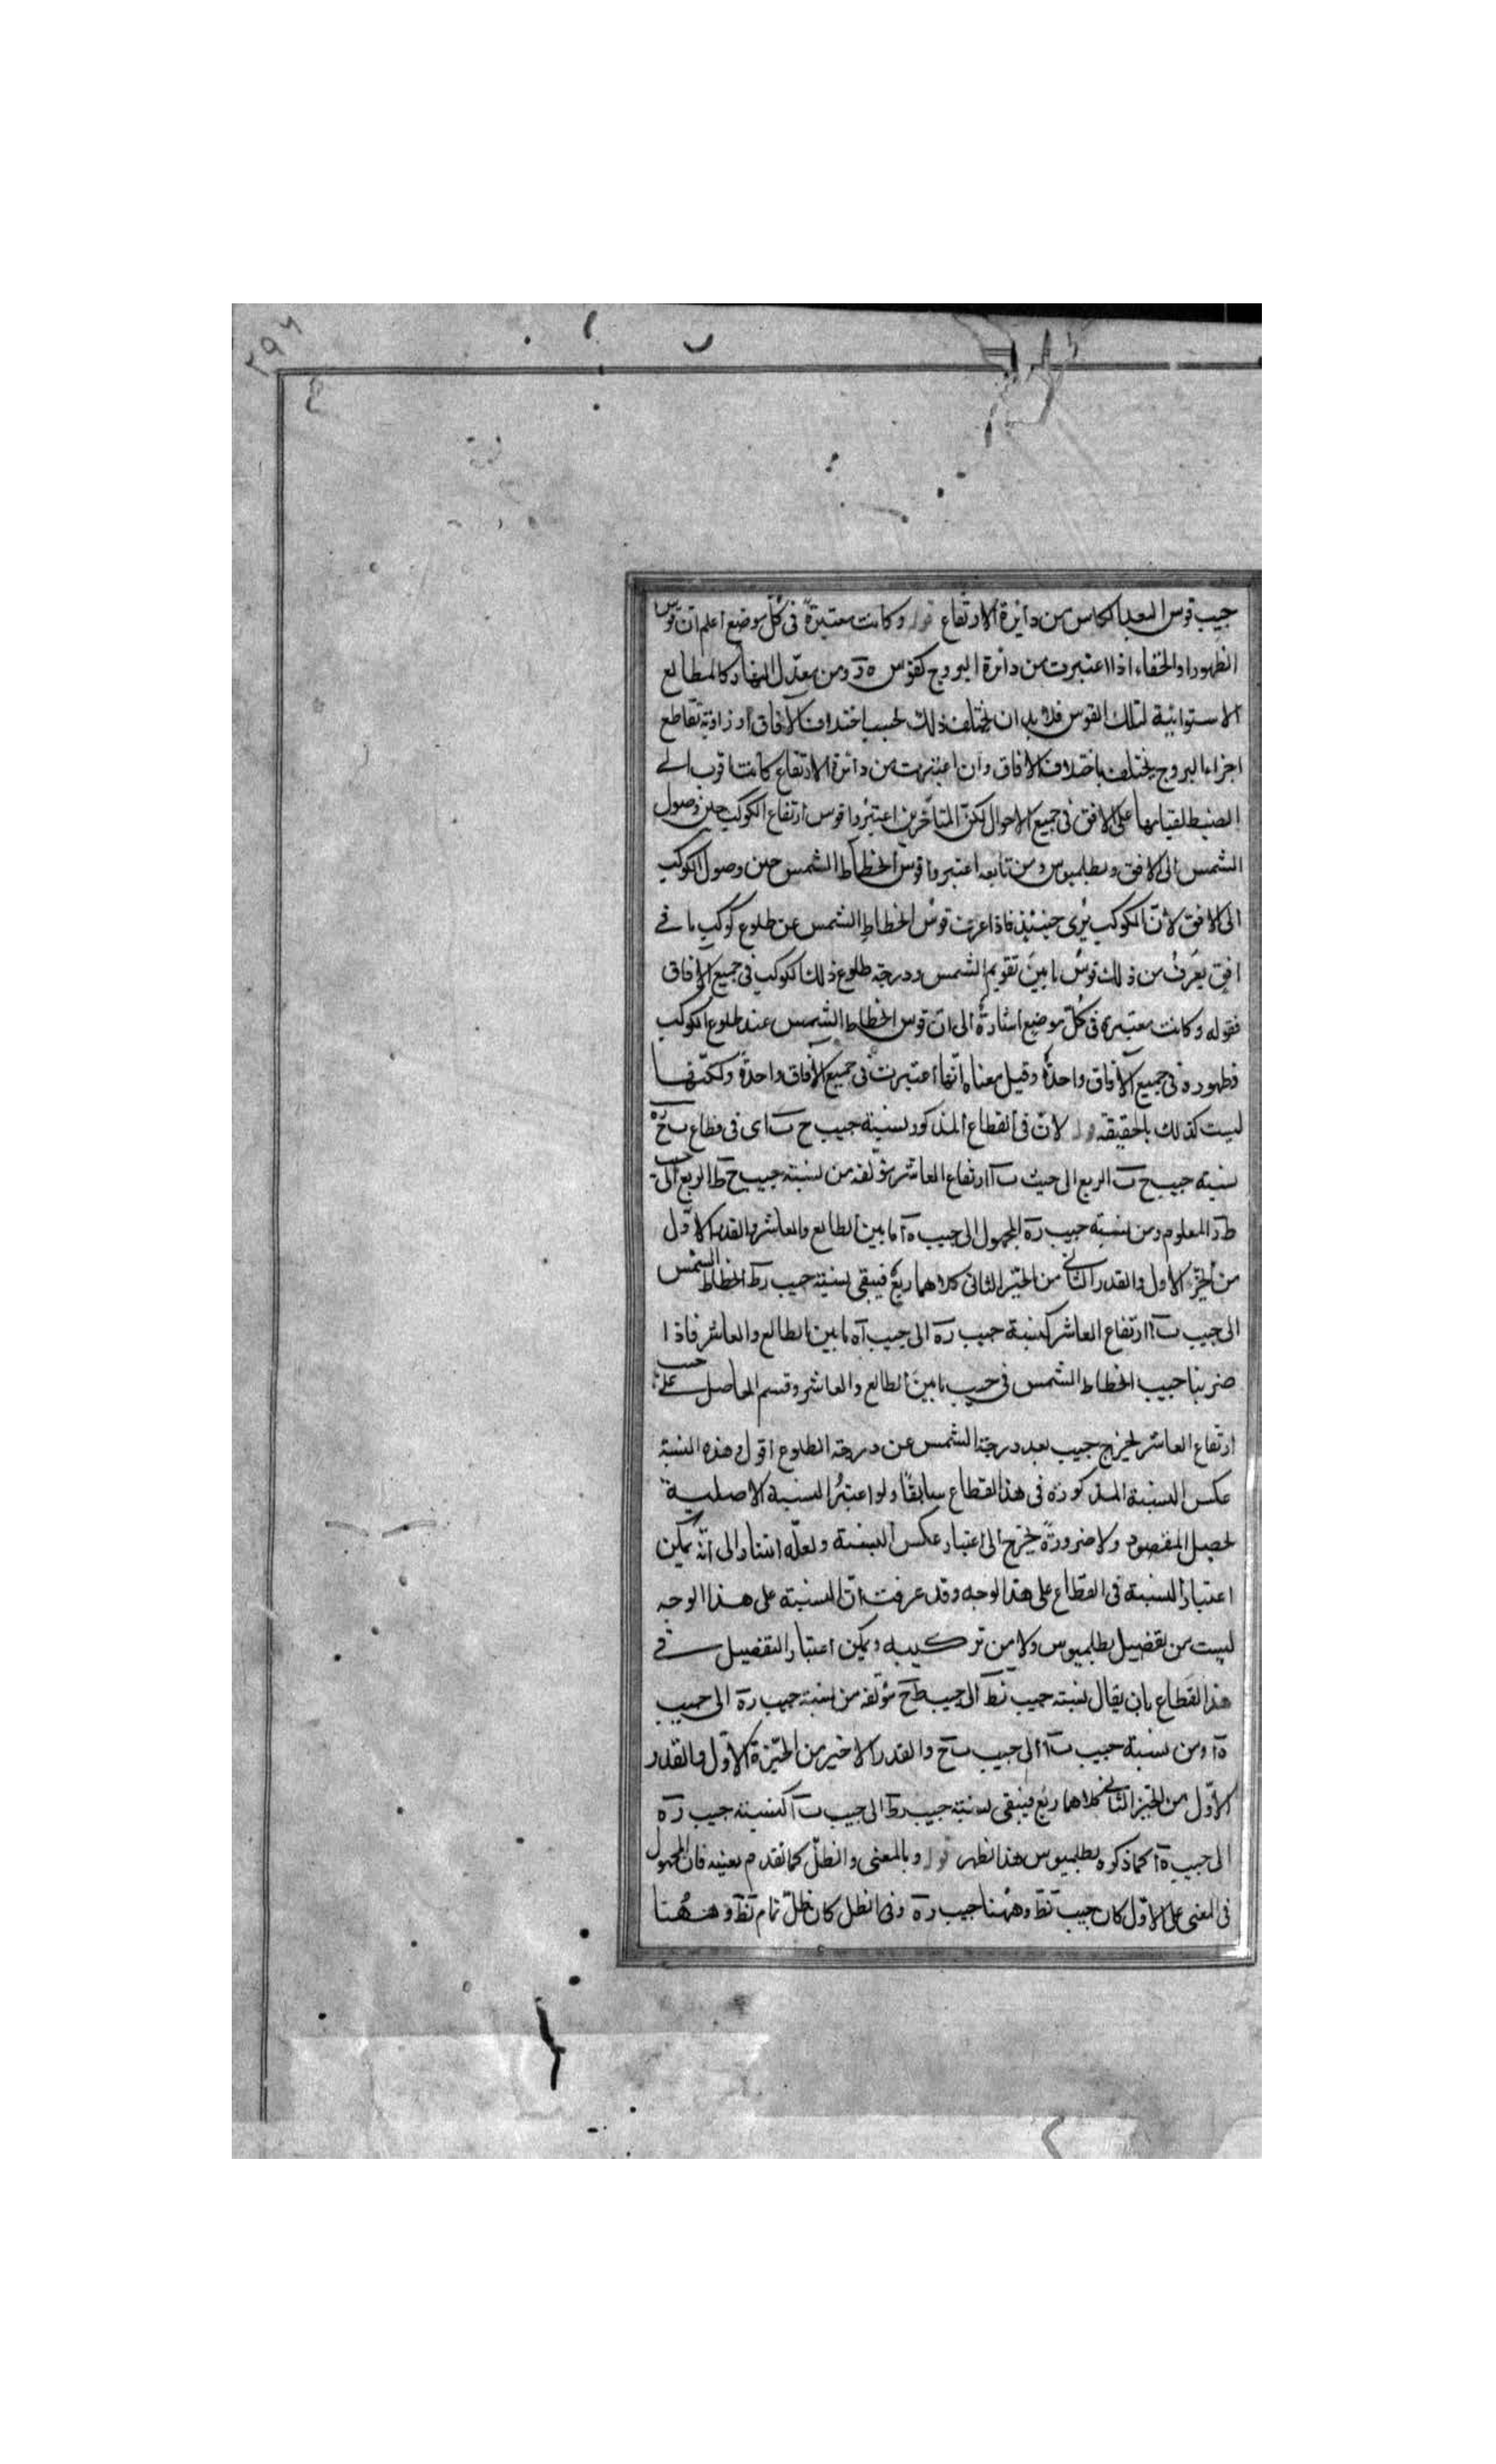 ٢٩٦
جيب قوس البعد الكاس من دائرة الارتفاع قوله وكانت معتبرةً فى كلّ موضع اعلم انّ قوس
الظهور او الخفاء اذا اعتبرت من دائرة البروج كقوس ه ز ومن معدّل النهار كالمطالع
الاستوائية لتلك القوس فلا بد ان يختلف ذلك بحسب اختلاف الآفاق او زاوية تقاطع
اجزاء البروج يختلف باختلاف الافاق وان اعتبرت من دائرة الارتفاع كانت اقرب الے
الضبط لقيامها على الافق فى جميع الاحوال لكنّ المتأخّرين اعتبرُوا قوس ارتفاع الكوكب حين وصول
الشمس الى الافق وبطلميوس ومن تابعه اعتبروا قوس انحطاط الشمس حين وصول الكوكب
الى الافق لانّ الكوكب يُرى حينئذٍ فاذا عرفت قوسُ انحطاطِ الشمس عن طلوع كوكب ما فے
افق يعرف من ذلك قوسُ ما بينَ تقويم الشمس ودرجة طلوع ذلك الكوكب فى جميع الآفاق
فقوله وكانت معتبرة فى كُلّ موضع اشارةٌ الى انّ قوس انحطاط الشمس عند طلوع الكوكب
فظهوره فى جميع الآفاق واحدةٌ وقيل معناه انّها اعتبرت فى جميع الآفاق واحدةً ولكنّها
ليست كذلك بالحقيقة قوله لانّ فى القطاع المذكور نسبة جيب ح ب اى فى قطاع ب ح ه
نسبة جيب ح ب الربع الى جيب ب ا ارتفاع العاشر مؤلّفة من نسبة جيب ح ط الربع الى جيب
ط ز المعلوم ومن نسبة جيب ز ه المجهول الى جيب ه ا ما بين الطالع والعاشر والقدر الاوّل
من الحيّز الاول والقدر الثانى من الحيّز الثانى كلاهما ربعٌ فيبقى نسبة جيب ز ط انحطاط الشمس
الى جيب ب ا ارتفاع العاشر كنسبة جيب ز ه الى جيب ا ه ما بين الطالع والعاشر فاذا
ضربنا جيب انحطاط الشمس فى جيب ما بين الطالع والعاشر وقسم الحاصل علے جيب
ارتفاع العاشر يخرج جيب بعد درجة الشمس عن درجة الطلوع اقول وهذه النسبة
عكس النسبة المذكورة فى هذا القطاع سابقًا ولو اعتبرُ النسبة الاصلية
لحصل المقصود ولا ضرورةً يخرج الى اعتبار عكس النسبة ولعلّه اشار الى انّه يمكن
اعتبار النسبة فى القطاع على هذا الوجه وقد عرفت انّ النسبة على هذا الوجه
ليست من تفضيل بطلميوس ولا من تركيبه ويمكن اعتبار التفضيل فے
هذا القطاع بان يقال نسبة جيب ز ط الى جيب ط ح مؤلّفة من نسبة جيب ز ه الى جيب
ه ا ومن نسبة جيب ب ا الى جيب ب ح والقدر الاخير من الحيّزة الاوّل والقدر
الاوّل من الحيّز الثانى كلاهما ربع فيبقى نسبة جيب ز ط الى جيب ب ا كنسبة جيب ز ه
الى جيب ه ا كما ذكره بطلميوس هذا نظهر قوله وبالمغنى والظلّ كما تقدم بعينه فان المجهول
فى المغنى على الاوّل كان جيب ز ط وههُنا جيب ز ه وفى الظل كان ظلّ تمام ز ط وههُنا